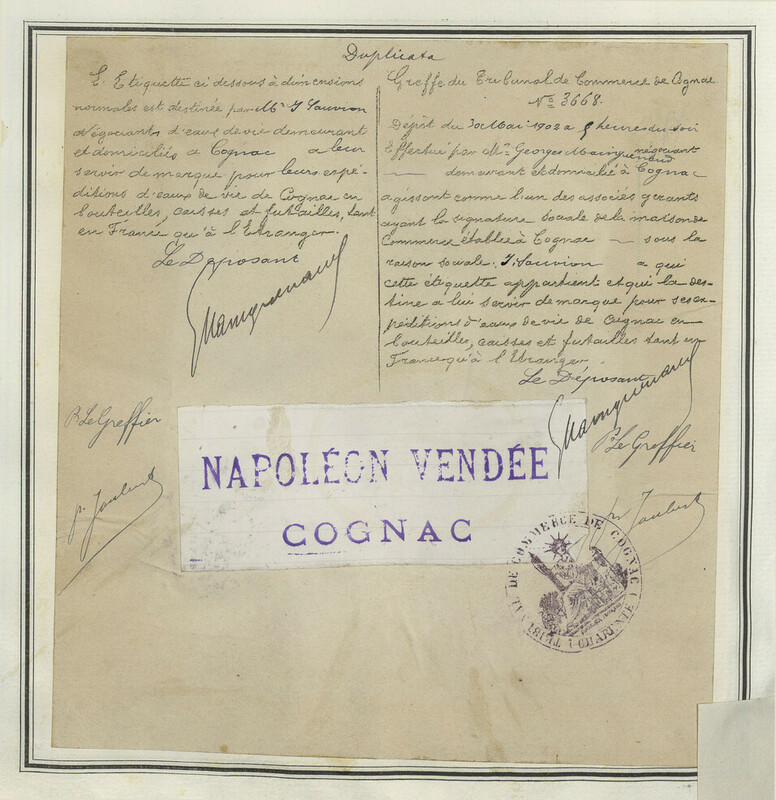 Duplicata
L'Etiquette ci dessous à dimensions
normales est destinée par Mrs J. Sauvion
Négociants d'eaux de vie demeurant
et domiciliés à Cognac à leur
servir de marque pour leurs expé-
ditions d'eaux de vie de Cognac en
bouteilles, caisses et futailles, tant
en France qu'à l'Etranger.
Le Déposant
Mainguenaud
Pr Le Greffier
pr Joubert
Greffe du Tribunal de Commerce de Cognac
No 3668.
Dépôt du 30 Mai 1902 à heures du soir
Effectué par Mr Georges Mainguenaud négociant
— demeurant et domicilié à Cognac
agissant comme l'un des associés gérants
ayant la signature sociale de la maison de
Commerce établie à Cognac — sous la
raison sociale J. Sauvion à qui
cette étiquette appartient et qui la des-
tine à lui servir de marque pour ses ex-
péditions d'eaux de vie de Cognac en
bouteilles, caisses et futailles tant en
France qu'à l'Etranger.
Le Déposant
Mainguenaud
Pr Le Greffier
pr Joubert
NAPOLÉON VENDÉE
COGNAC
TRIBUNAL DE COMMERCE DE COGNAC (CHARENTE)